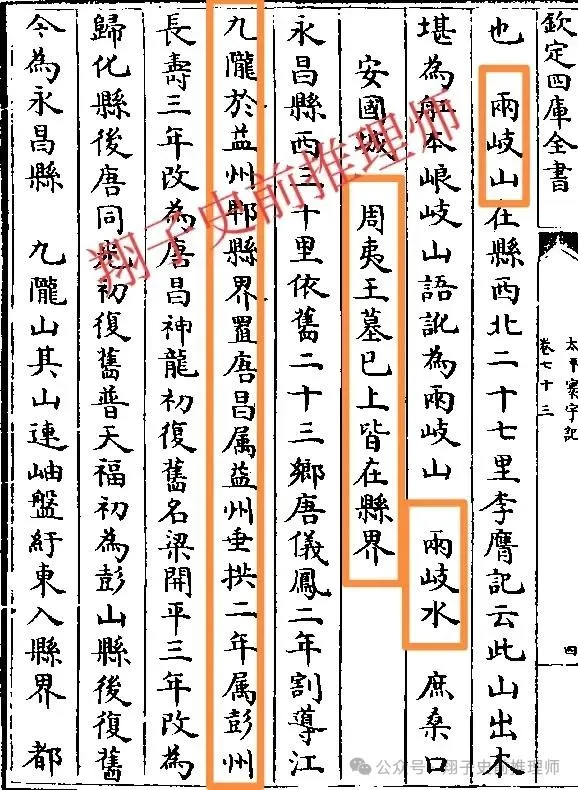 欽定四庫全書
太平寰宇記
卷七十三
四
也 兩岐山在縣西北二十七里李膺記云此山出木
堪為舡本崀岐山語訛為兩岐山 兩岐水 庶桑口
安國城 周夷王墓已上皆在縣界
永昌縣西三十里依舊二十三鄉唐儀鳳二年割導江
九隴於益州郫縣界置唐昌属益州垂拱二年属彭州
長壽三年改為唐昌神龍初復舊名梁開平三年改為
歸化縣後唐同光初復舊普天福初為彭山縣後復舊
今為永昌縣 九隴山其山連岫盤紆東入縣界 都
翔子史前推理师
公众号·翔子史前推理师